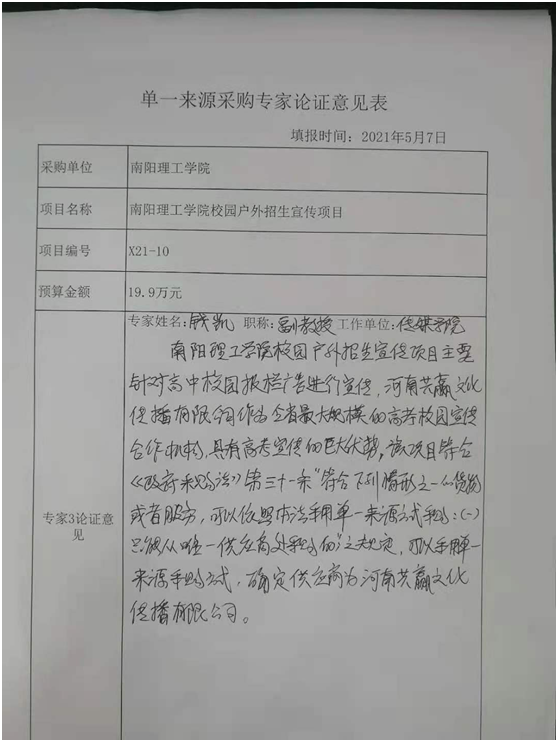 单一来源采购专家论证意见表
填报时间：2021年5月7日
采购单位 南阳理工学院
项目名称 南阳理工学院校园户外招生宣传项目
项目编号 X21-10
预算金额 19.9万元
专家3论证意见
专家姓名：钱凯 职称：副教授 工作单位：传媒学院
南阳理工学院校园户外招生宣传项目主要
针对高中校园报栏广告进行宣传，河南共赢文化
传播有限公司作为全省最大规模的高考校园宣传
合作机构，具有高考宣传的巨大优势，该项目符合
《政府采购法》第三十一条“符合下列情形之一的货物
或者服务，可以依照本法采用单一来源方式采购：（一）
只能从唯一供应商处采购的”之规定，可以采用单一
来源采购方式，确定供应商为河南共赢文化
传播有限公司。